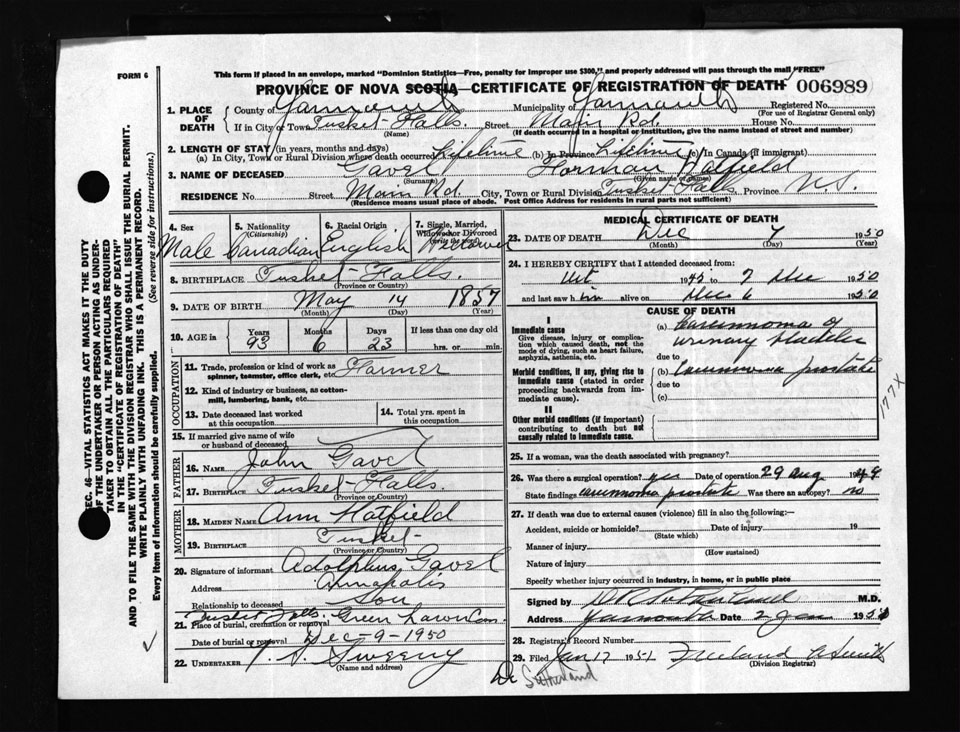 FORM 6
This form if placed in an envelope, marked "Dominion Statistics—Free, penalty for improper use $300," and properly addressed will pass through the mail "FREE"
PROVINCE OF NOVA SCOTIA—CERTIFICATE OF REGISTRATION OF DEATH 006989
1. PLACE OF DEATH { County of Yarmouth Municipality of Yarmouth Registered No.
(For use of Registrar General only)
If in City or Town Tusket Falls. Street Main Rd. House No.
(Name) (If death occurred in a hospital or institution, give the name instead of street and number)
2. LENGTH OF STAY (in years, months and days)
(a) In City, Town or Rural Division where death occurred Lifetime (b) In Province Lifetime (c) In Canada (if immigrant)
3. NAME OF DECEASED Gavel Norman Hatfield
(Surname) (Given name or names)
RESIDENCE No. Street Main Rd. City, Town or Rural Division Tusket Falls Province N.S.
(Residence means usual place of abode. Post Office Address for residents in rural parts not sufficient)
SEC. 46—VITAL STATISTICS ACT MAKES IT THE DUTY
OF THE UNDERTAKER OR PERSON ACTING AS UNDER-
TAKER TO OBTAIN ALL THE PARTICULARS REQUIRED
IN THE "CERTIFICATE OF REGISTRATION OF DEATH"
AND TO FILE THE SAME WITH THE DIVISION REGISTRAR WHO SHALL ISSUE THE BURIAL PERMIT.
WRITE PLAINLY WITH UNFADING INK. THIS IS A PERMANENT RECORD.
Every item of information should be carefully supplied. (See reverse side for instructions.)
4. Sex Male
5. Nationality (Citizenship) Canadian
6. Racial Origin English
7. Single, Married, Widowed or Divorced (write the word) Widower
8. BIRTHPLACE Tusket Falls.
(Province or Country)
9. DATE OF BIRTH May 14 1857
(Month) (Day) (Year)
10. AGE in { Years 93 Months 6 Days 23 If less than one day old
hrs. or min.
OCCUPATION
11. Trade, profession or kind of work as spinner, teamster, office clerk, etc. Farmer
12. Kind of industry or business, as cotton-mill, lumbering, bank, etc.
13. Date deceased last worked at this occupation
14. Total yrs. spent in this occupation
15. If married give name of wife or husband of deceased
FATHER
16. NAME John Gavel
17. BIRTHPLACE Tusket Falls.
(Province or Country)
MOTHER
18. MAIDEN NAME Ann Hatfield
19. BIRTHPLACE Tusket
(Province or Country)
20. Signature of informant Adolphus Gavel
Address Annapolis
Relationship to deceased Son
Tusket Falls.
21. Place of burial, cremation or removal Green Lawn Cem.
Date of burial or removal Dec-9-1950
22. UNDERTAKER V. S. Sweeny
(Name and address)
MEDICAL CERTIFICATE OF DEATH
23. DATE OF DEATH Dec 7 1950
(Month) (Day) (Year)
24. I HEREBY CERTIFY that I attended deceased from:
1945 7 Dec 1950
and last saw him alive on Dec 6 1950
CAUSE OF DEATH
I
Immediate cause
Give disease, injury or complication which caused death, not the mode of dying, such as heart failure, asphyxia, asthenia, etc.
(a) Carcinoma of
urinary bladder
due to
Morbid conditions, if any, giving rise to immediate cause (stated in order proceeding backwards from immediate cause).
(b) Carcinoma prostate
due to
(c)
177X
II
Other morbid conditions (if important) contributing to death but not causally related to immediate cause.
25. If a woman, was the death associated with pregnancy?
26. Was there a surgical operation? yes Date of operation 29 Aug 1949
State findings carcinoma prostate Was there an autopsy? no
27. If death was due to external causes (violence) fill in also the following:—
Accident, suicide or homicide? Date of injury 19
(State which)
Manner of injury
(How sustained)
Nature of injury
Specify whether injury occurred in industry, in home, or in public place
Signed by Sutherland M.D.
Address Yarmouth Date 2 Jan 1951
28. Registrar's Record Number
29. Filed Jan 17 1951 Freeland A Smith
(Division Registrar)
Dr Sutherland